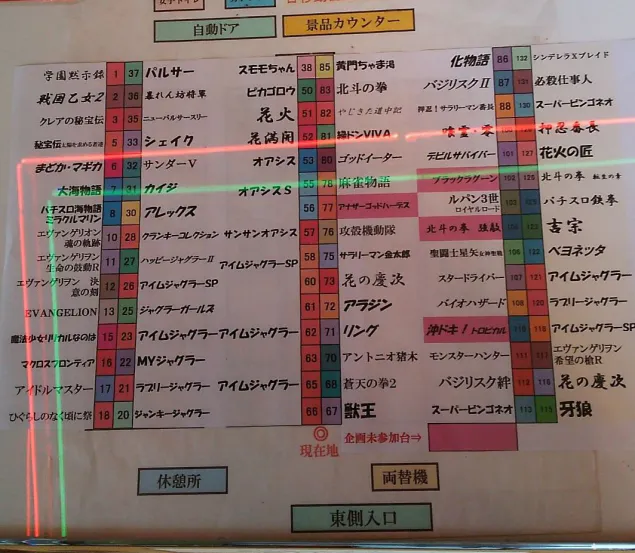 自動ドア
景品カウンター
学園黙示録 1 37 パルサー
戦国乙女2 2 36 暴れん坊将軍
クレアの秘宝伝 3 35 ニューパルサースリー
秘宝伝 太陽を求める者達 5 33 シェイク
まどか・マギカ 6 32 サンダーV
大海物語 7 31 カイジ
パチスロ海物語
ミラクルマリン 8 30 アレックス
エヴァンゲリオン
魂の軌跡 10 28 クランキーコレクション
エヴァンゲリオン
生命の鼓動R 11 27 ハッピージャグラーII
エヴァンゲリオン 決
意の刻 12 26 アイムジャグラーSP
EVANGELION 13 25 ジャグラーガールズ
魔法少女リリカルなのは 15 23 アイムジャグラー
マクロスフロンティア 16 22 MYジャグラー
アイドルマスター 17 21 ラブリージャグラー
ひぐらしのなく頃に祭 18 20 ジャンキージャグラー
スモモちゃん 38 85 黄門ちゃま
ピカゴロウ 50 83 北斗の拳
花火 51 82 やじきた道中記
花満開 52 81 緑ドンVIVA
オアシス 53 80 ゴッドイーター
オアシスS 55 78 麻雀物語
56 77 アナザーゴッドハーデス
サンサンオアシス 57 76 攻殻機動隊
アイムジャグラーSP 58 75 サラリーマン金太郎
60 73 花の慶次
61 72 アラジン
アイムジャグラー 62 71 リング
63 70 アントニオ猪木
アイムジャグラー 65 68 蒼天の拳2
66 67 獣王
化物語 86 132 シンデレラXブレイド
バジリスクII 87 131 必殺仕事人
押忍!サラリーマン番長 88 130 スーパービンゴネオ
喰霊-零 押忍番長
デビルサバイバー 101 127 花火の匠
ブラックラグーン 102 126 北斗の拳 転生の章
ルパン3世
ロイヤルロード パチスロ鉄拳
北斗の拳 強敵 吉宗
聖闘士星矢 女神聖戦 106 122 ベヨネッタ
スタードライバー 107 121 アイムジャグラー
バイオハザード 108 120 ラブリージャグラー
沖ドキ!トロピカル アイムジャグラーSP
モンスターハンター 111 117 エヴァンゲリオン
希望の槍R
バジリスク絆 112 116 花の慶次
スーパービンゴネオ 113 115 牙狼
現在地
企画未参加台⇒
休憩所
両替機
東側入口